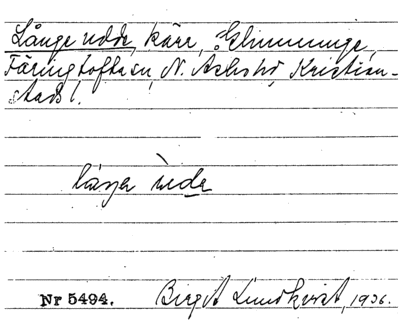 Långe udde, kärr, Glimminge,
Färingtofta sn, N. Åsbo hd, Kristian-
stads l.
Nr 5494. Birgit Lundkvist, 1936.